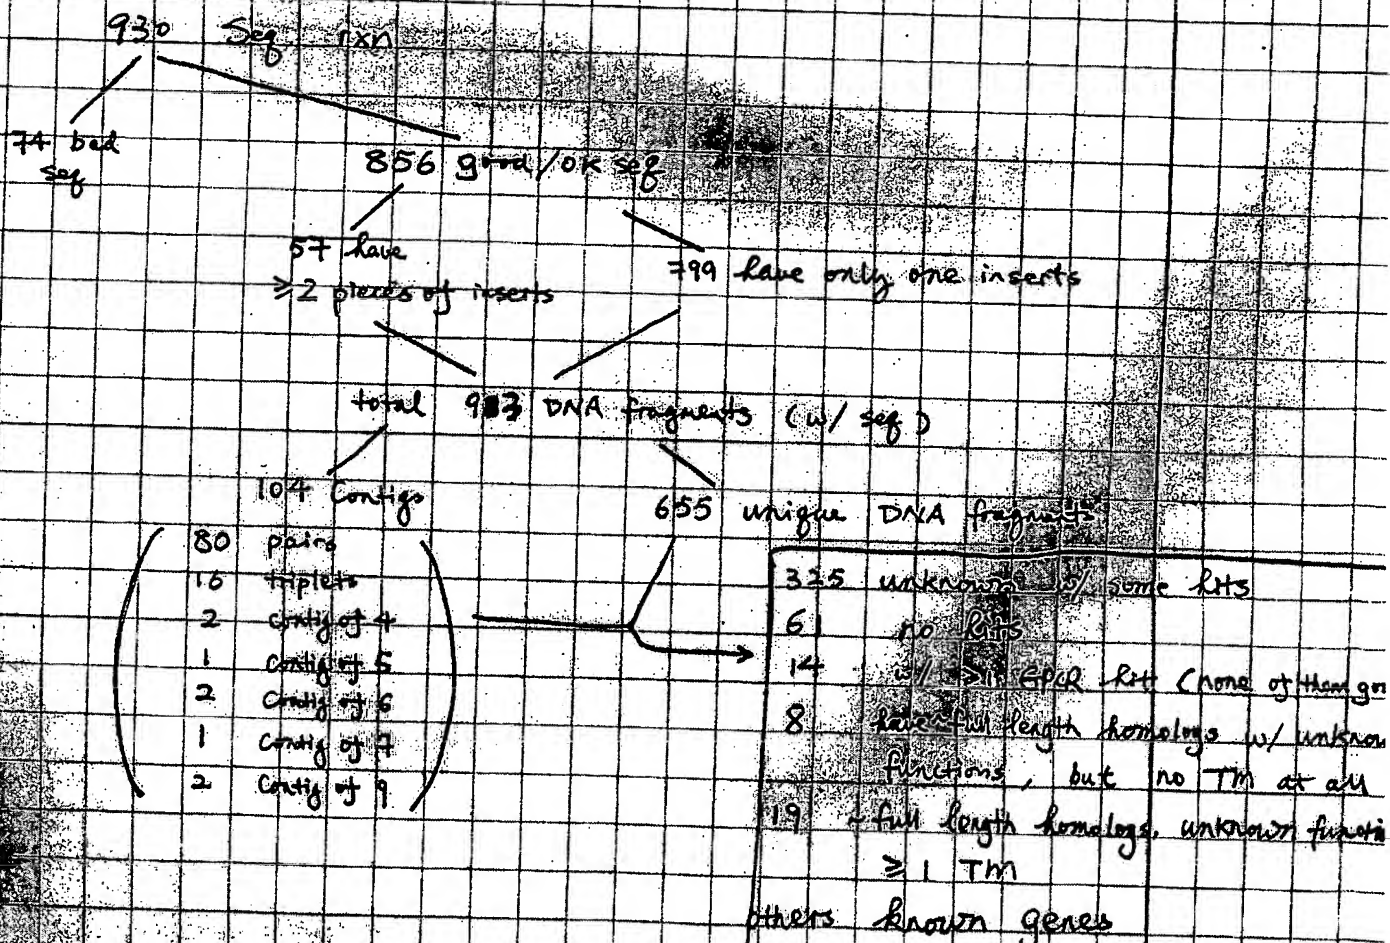 930 Seq rxn
74 bad
seq
856 good/ok seq
57 have
≥2 pieces of inserts
799 have only one inserts
total 913 DNA fragments (w/ seq)
104 Contigs
655 unique DNA fragments
80 pairs
16 triplets
2 Contig of 4
1 Contig of 5
2 Contig of 6
1 Contig of 7
2 Contig of 9
325 unknown w/ some hits
61 no hits
14 w/ ≥1 GPCR hit (none of them
8 have full length homologs w/ unknow
functions, but no TM at all
19 full length homologs, unknown functi
≥1 TM
others known genes